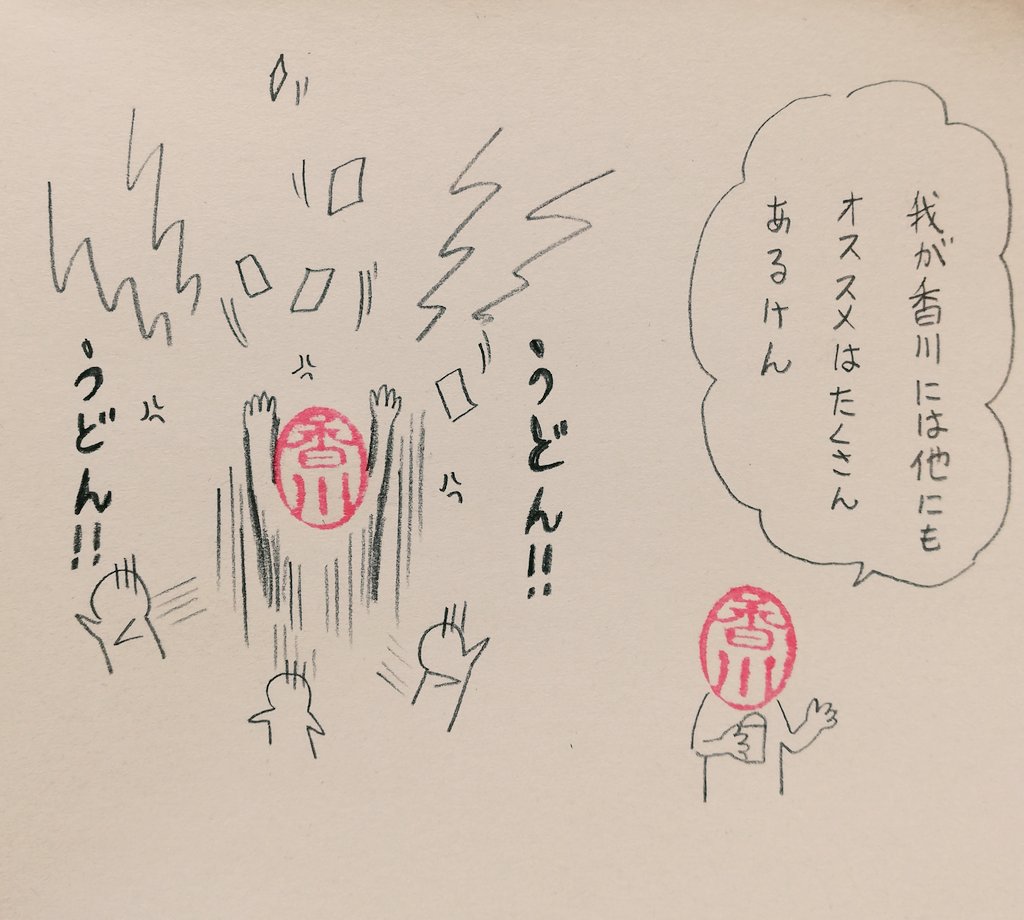 我が香川には他にも
オススメはたくさん
あるけん
香川
うどん!!
香川
うどん!!